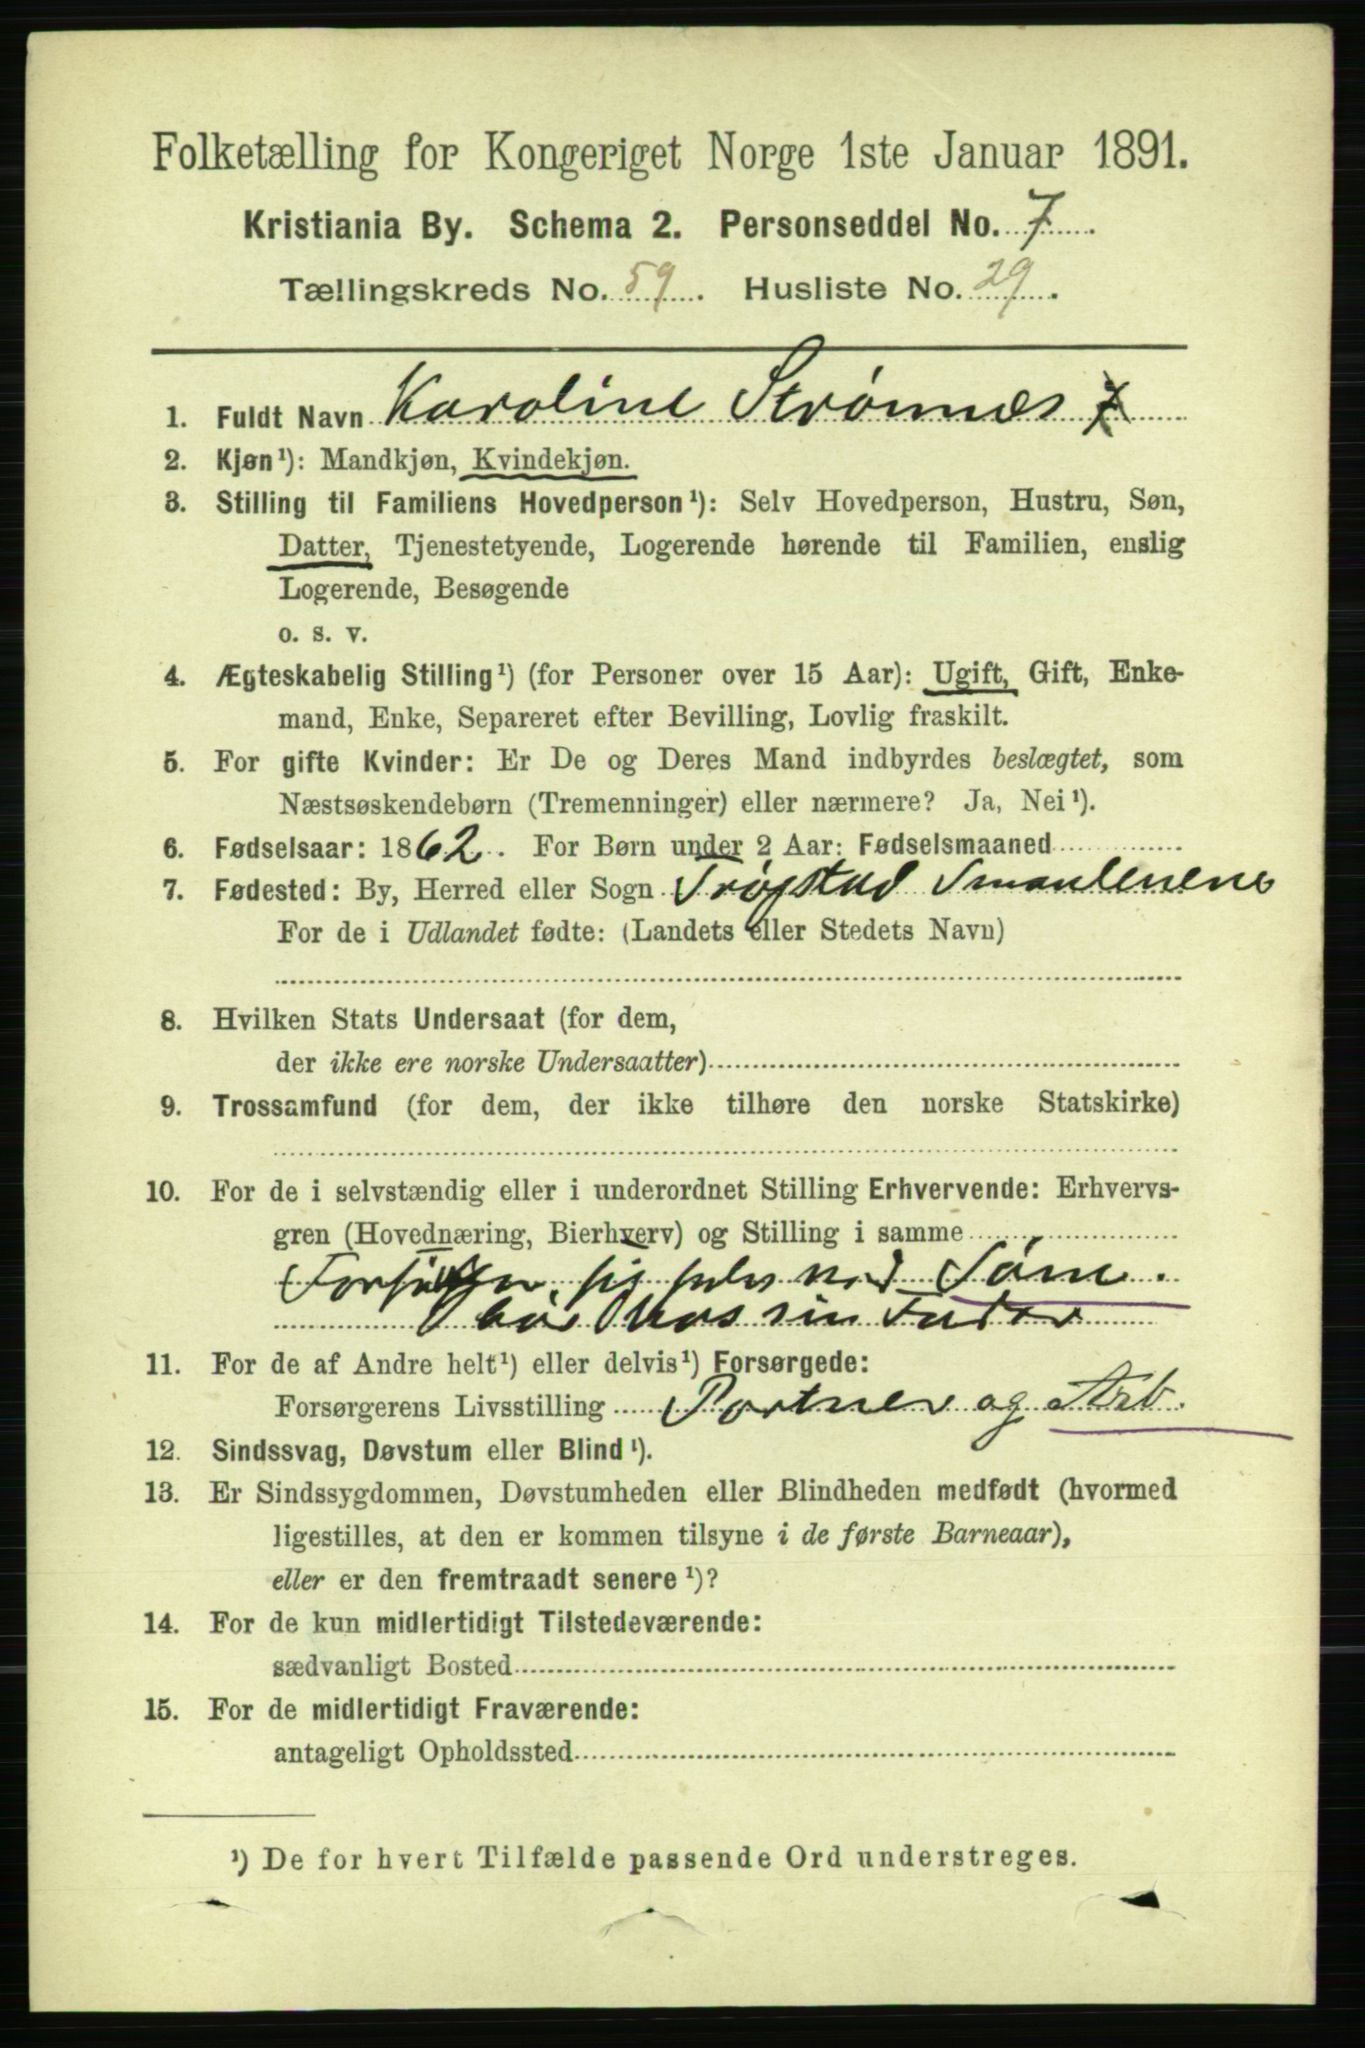 Folketælling for Kongeriget Norge 1ste Januar 1891.
Kristiania By. Schema 2. Personseddel No. 7.
Tællingskreds No. 59. Husliste No. 29.
1. Fuldt Navn Karoline Strømnæs
2. Kjøn¹): Mandkjøn, Kvindekjøn.
3. Stilling til Familiens Hovedperson¹): Selv Hovedperson, Hustru, Søn,
Datter, Tjenestetyende, Logerende hørende til Familien, enslig
Logerende, Besøgende
o. s. v.
4. Ægteskabelig Stilling¹) (for Personer over 15 Aar): Ugift, Gift, Enke-
mand, Enke, Separeret efter Bevilling, Lovlig fraskilt.
5. For gifte Kvinder: Er De og Deres Mand indbyrdes beslægtet, som
Næstsøskendebørn (Tremenninger) eller nærmere? Ja, Nei¹).
6. Fødselsaar: 1862. For Børn under 2 Aar: Fødselsmaaned
7. Fødested: By, Herred eller Sogn Trøgstad Smaalenene
For de i Udlandet fødte: (Landets eller Stedets Navn)
8. Hvilken Stats Undersaat (for dem,
der ikke ere norske Undersaatter)
9. Trossamfund (for dem, der ikke tilhøre den norske Statskirke)
10. For de i selvstændig eller i underordnet Stilling Erhvervende: Erhvervs-
gren (Hovednæring, Bierhverv) og Stilling i samme
Forsørger sig selv ved Søm.
bor hos sin Fader
11. For de af Andre helt¹) eller delvis¹) Forsørgede:
Forsørgerens Livsstilling Portner og Arb.
12. Sindssvag, Døvstum eller Blind¹).
13. Er Sindssygdommen, Døvstumheden eller Blindheden medfødt (hvormed
ligestilles, at den er kommen tilsyne i de første Barneaar),
eller er den fremtraadt senere¹)?
14. For de kun midlertidigt Tilstedeværende:
sædvanligt Bosted
15. For de midlertidigt Fraværende:
antageligt Opholdssted
¹) De for hvert Tilfælde passende Ord understreges.